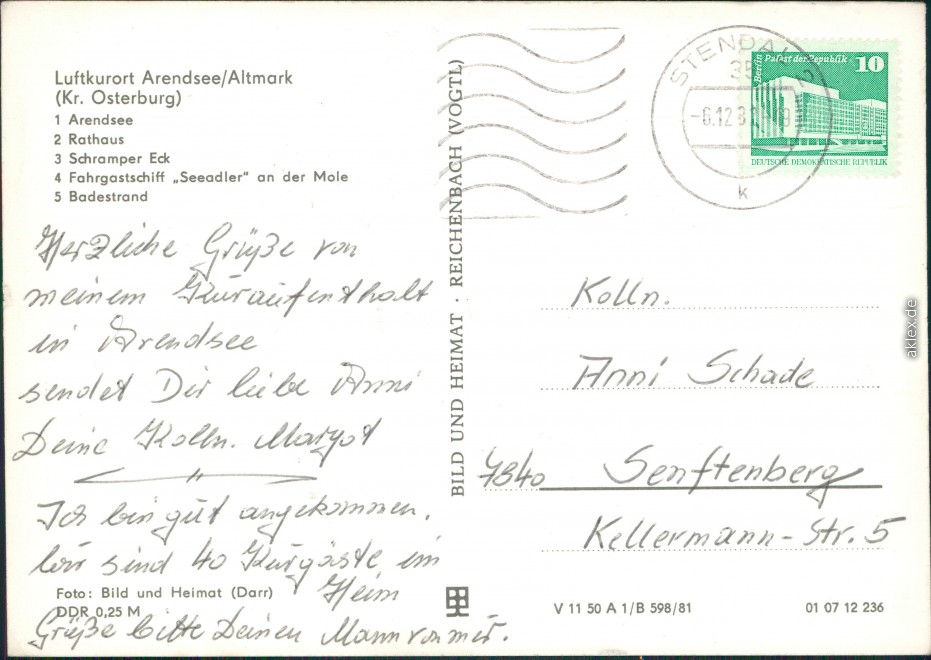 Luftkurort Arendsee/Altmark
(Kr. Osterburg)
1 Arendsee
2 Rathaus
3 Schramper Eck
4 Fahrgastschiff „Seeadler" an der Mole
5 Badestrand
Herzliche Grüße von
meinem Kuraufenthalt
in Arendsee
sendet Dir liebe Anni
Deine Kolln. Margot
Ich bin gut angekommen.
Wir sind 40 Kurgäste im
Heim
Grüße bitte Deinen Mann von mir.
Foto: Bild und Heimat (Darr)
DDR 0,25 M
BILD UND HEIMAT · REICHENBACH (VOGTL)
STENDAL 2
35
-6.12.8
k
Berlin Palast der Republik 10
DEUTSCHE DEMOKRATISCHE REPUBLIK
Kolln.
Anni Schade
Senftenberg
Kellermann-Str. 5
V 11 50 A 1/B 598/81
01 07 12 236
aklex.de